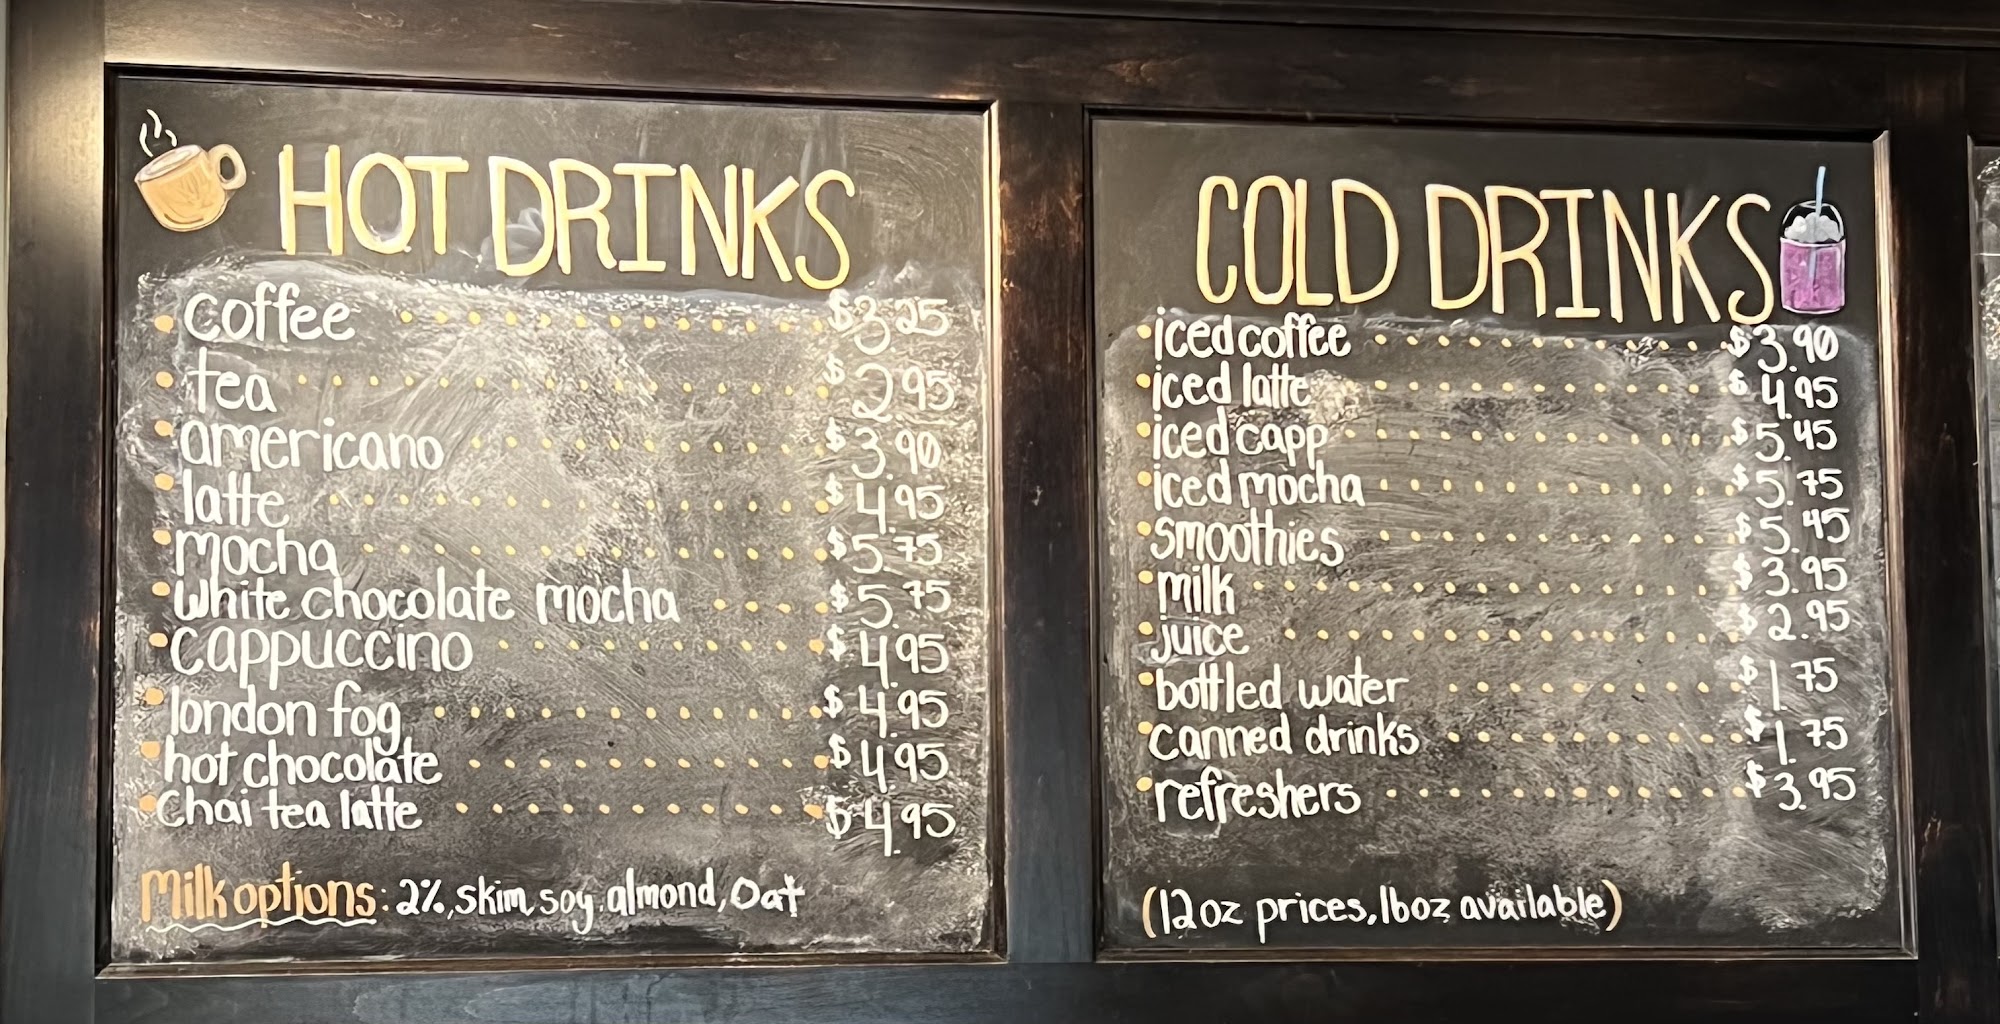 HOT DRINKS
coffee $3.25
tea $2.95
americano $3.90
latte $4.95
mocha $5.75
White chocolate mocha $5.75
cappuccino $4.95
london fog $4.95
hot chocolate $4.95
Chai tea latte $4.95
Milk options: 2%, skim, soy, almond, oat
COLD DRINKS
iced coffee $3.90
iced latte $4.95
iced capp $5.45
iced mocha $5.75
smoothies $5.45
milk $3.95
juice $2.95
bottled water $1.75
canned drinks $1.75
refreshers $3.95
(12oz prices, 16oz available)